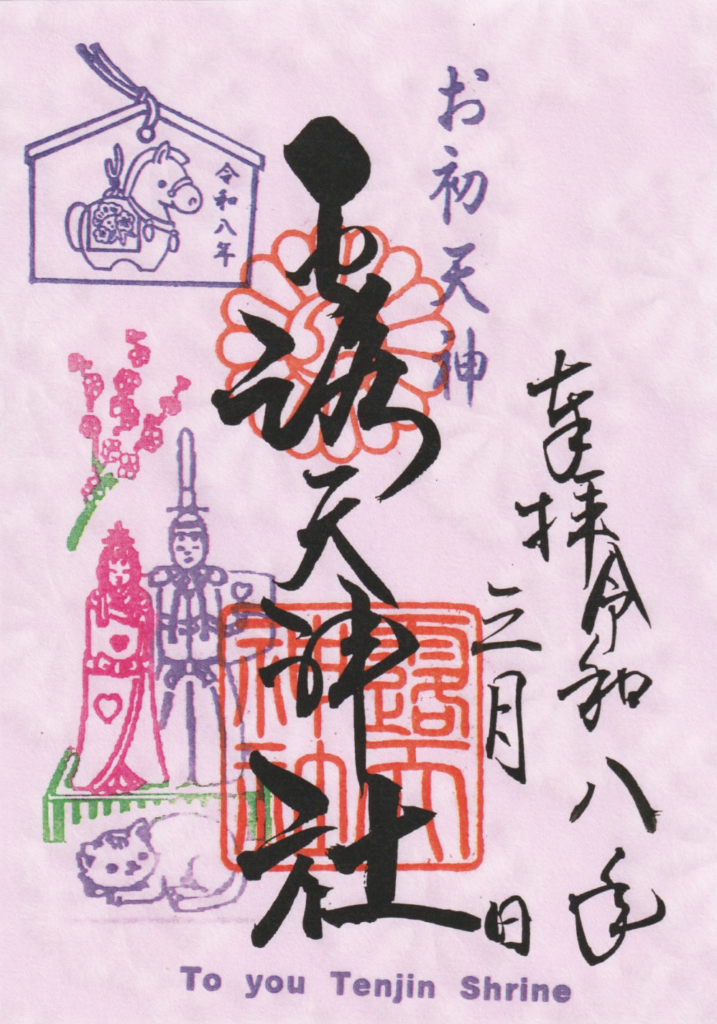 奉拝 令和八年
三月 日
お初天神
露天神社
令和八年
露天
神社
To you Tenjin Shrine